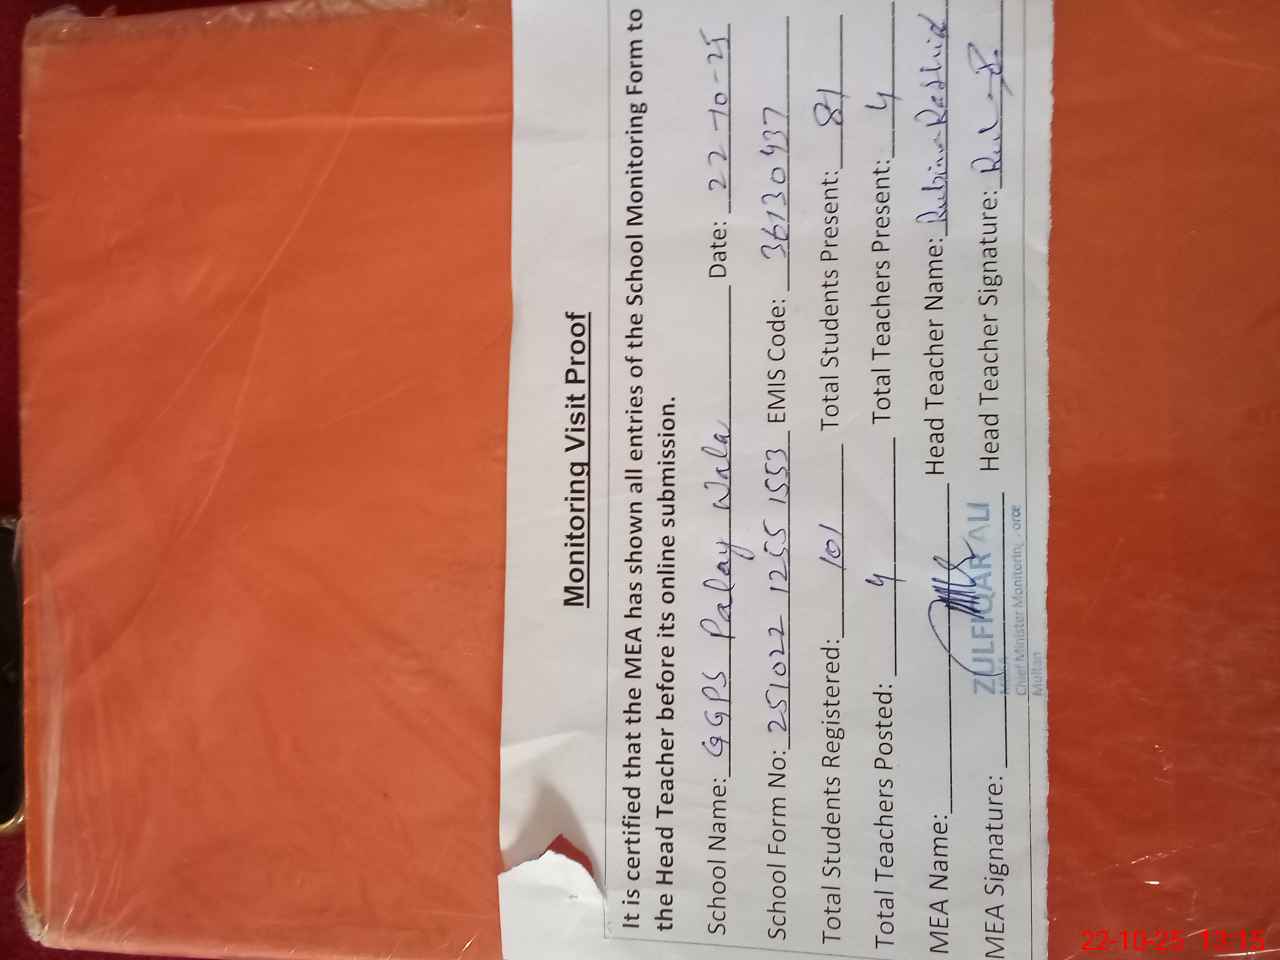 Monitoring Visit Proof
It is certified that the MEA has shown all entries of the School Monitoring Form to
the Head Teacher before its online submission.
School Name: GGPS Palay Wala Date: 22-10-25
School Form No: 251022 1255 1553 EMIS Code: 36130437
Total Students Registered: 101 Total Students Present: 81
Total Teachers Posted: 4 Total Teachers Present: 4
MEA Name: Head Teacher Name: Rubina Rashid
MEA Signature: Head Teacher Signature:
ZULFIQAR ALI
MEA
Chief Minister Monitoring Force
Multan
22-10-25 13:15